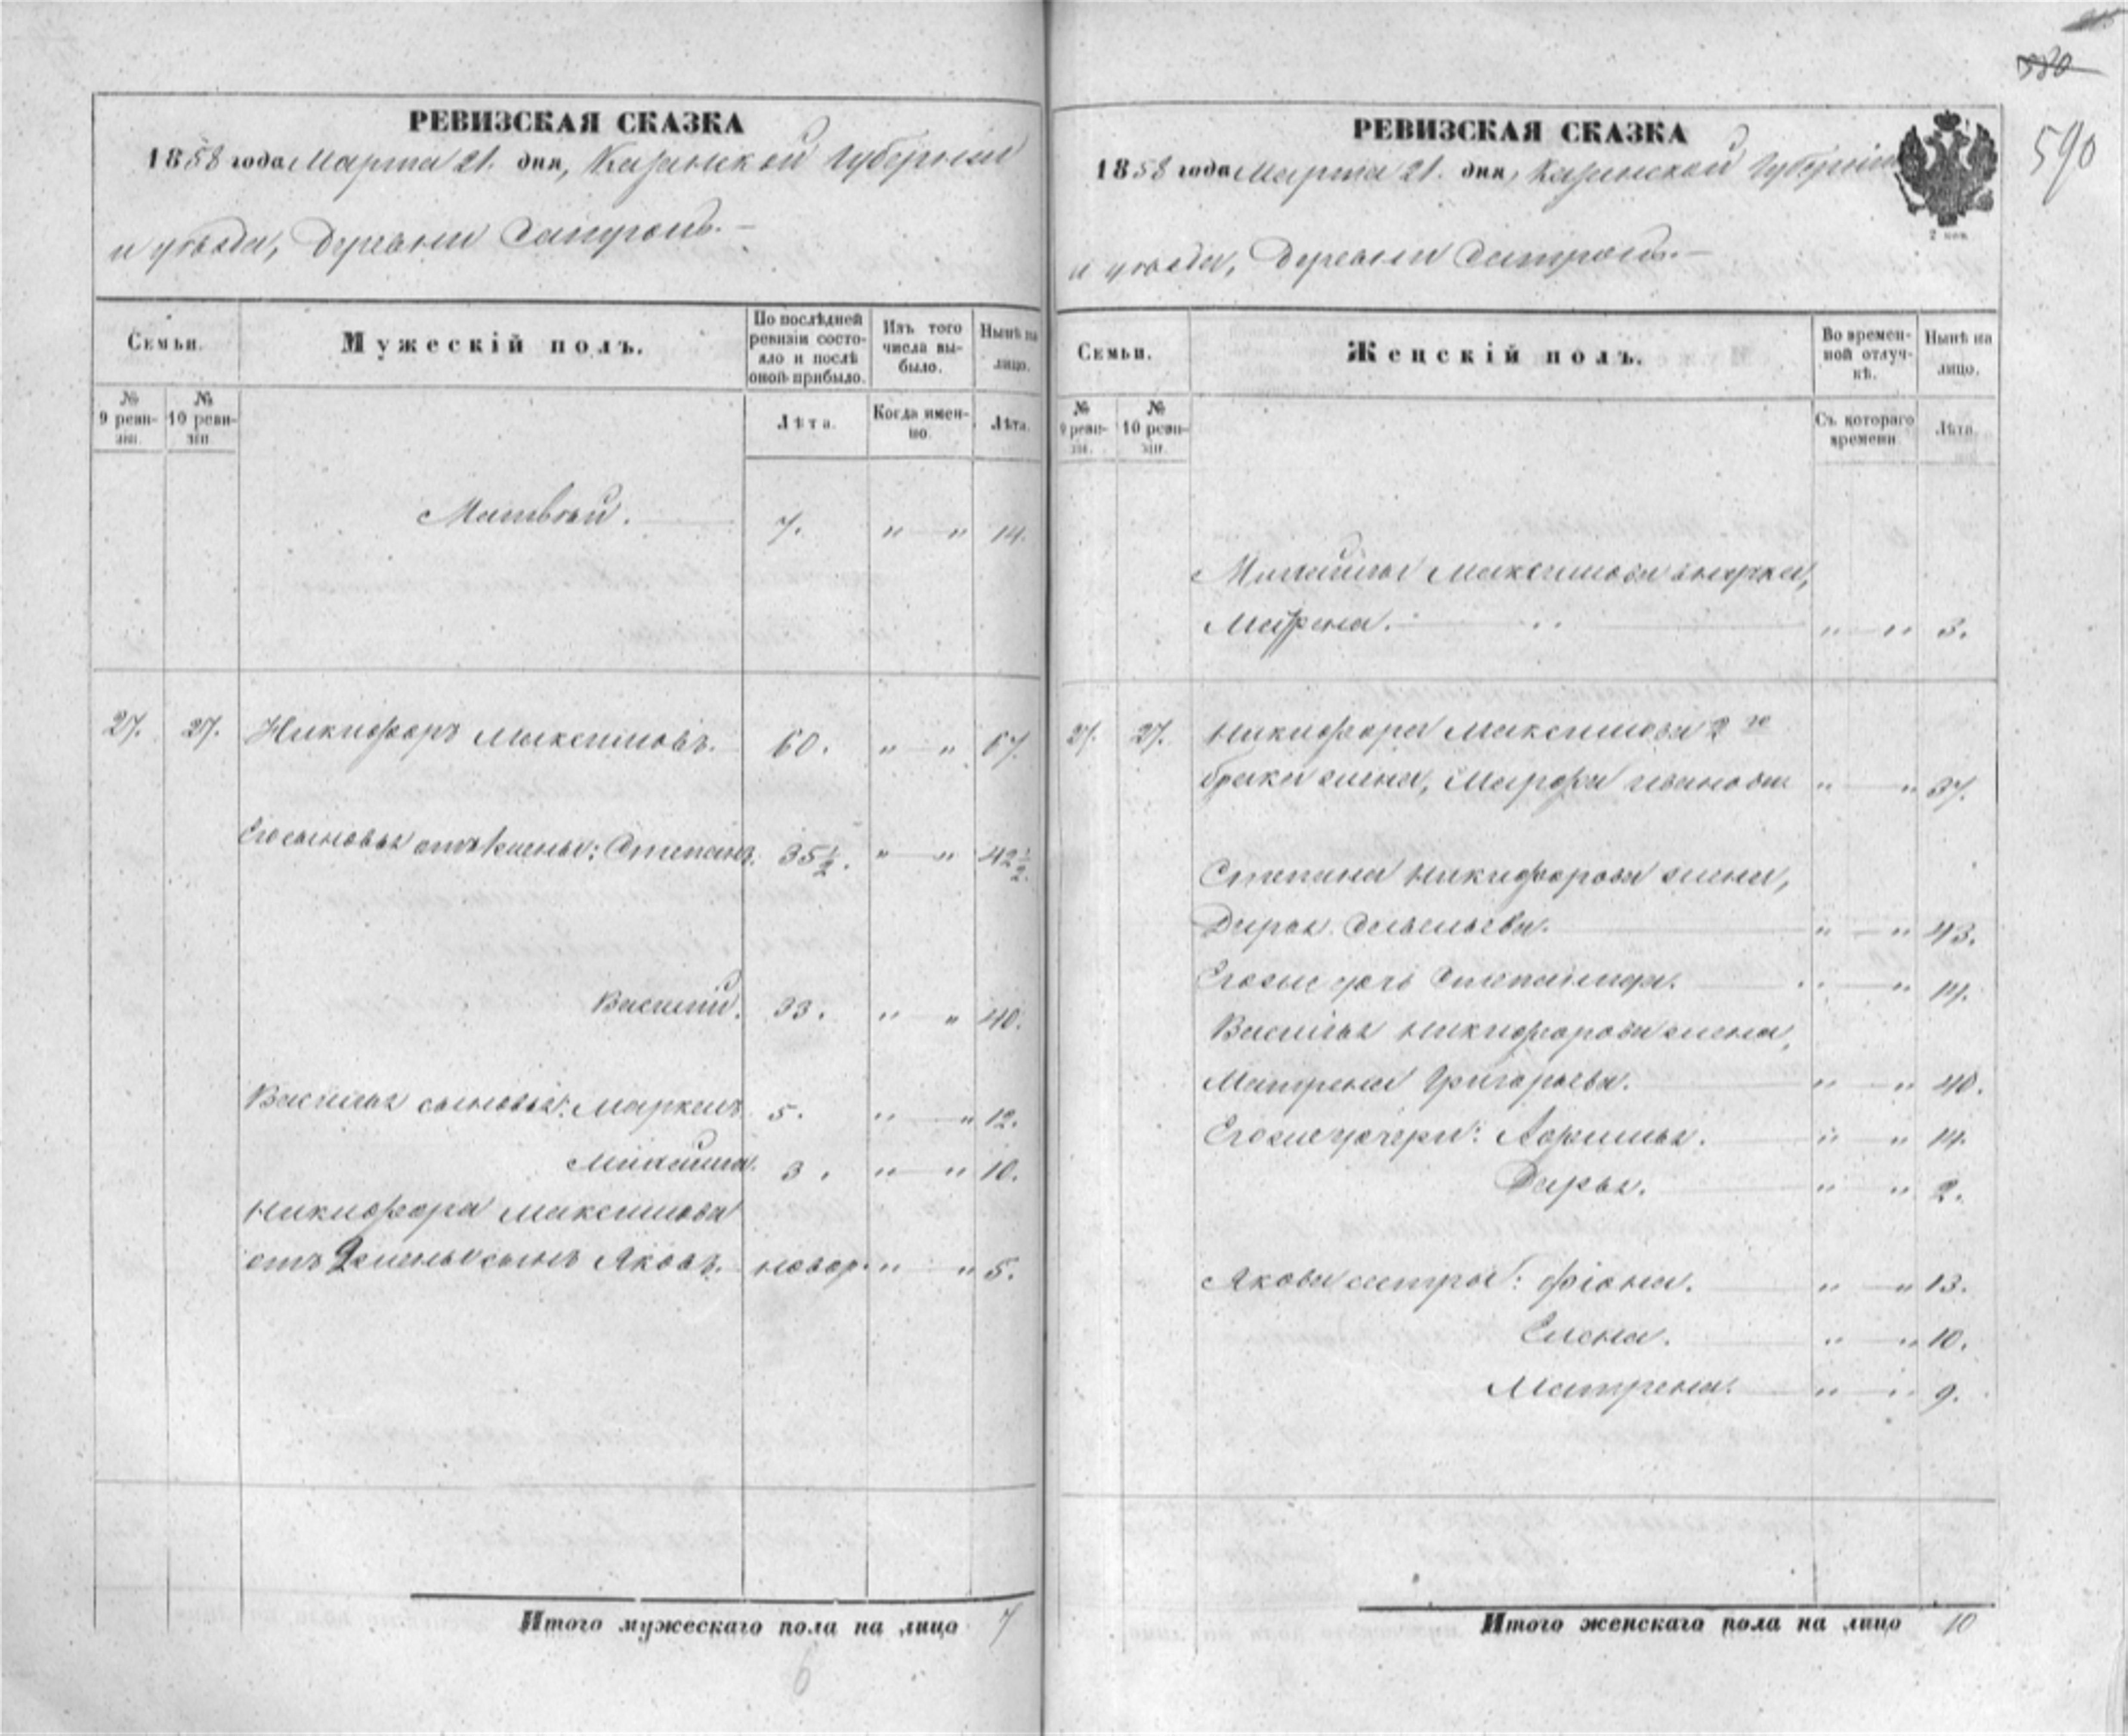 РЕВИЗСКАЯ СКАЗКА
1858 года Марта 21. дня, Казанской Губернии
и уѣзда, Деревни
Семьи.
Мужескій полъ.
По послѣдней ревизіи состояло и послѣ оной прибыло.
Изъ того числа выбыло.
Нынѣ на лицо.
№ 9 ревизіи.
№ 10 ревизіи
Лѣта.
Когда именно.
Лѣта.
Матвѣй. 7. " — " 14.
27. 27. Никифоръ Максимовъ. 60. " — " 67.
Его сыновья отъ 1 жены: Степанъ. 35½. " — " 42½.
Василий. 33. " — " 40.
Василья сыновья: Маркелъ 5. " — " 12.
3. " — " 10.
Никифора Максимова
отъ 2 жены сынъ Яковъ. новор. " — " 5.
Итого мужескаго пола на лицо 7
6
580
590
РЕВИЗСКАЯ СКАЗКА
1858 года Марта 21. дня, Казанской Губерніи
и уѣзда, Деревни
2 коп.
Семьи.
Женскій полъ.
Во временной отлучкѣ.
Нынѣ на лицо.
№ 9 ревизіи.
№ 10 ревизіи.
Съ котораго времени
Лѣта
Максимова внучка,
" — " 3.
27. 27. Никифора Максимова 2го
брака жена, Марфа Иванова " — " 37.
Степана Никифорова жена,
Дарья Савельева. " — " 43.
Его же дочь Степанида. " — " 14.
Василья Никифорова жена,
Матрена Григорьева. " — " 40.
Его же дочери: " — " 14.
Дарья. " — " 2.
Якова сестры: Фіона. " — " 13.
Елена. " — " 10.
Матрена. " — " 9.
Итого женскаго пола на лицо 10